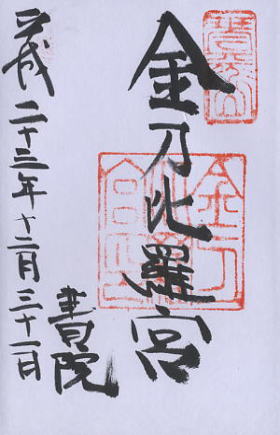 金刀比羅宮
書院
平成二十三年十二月三十一日